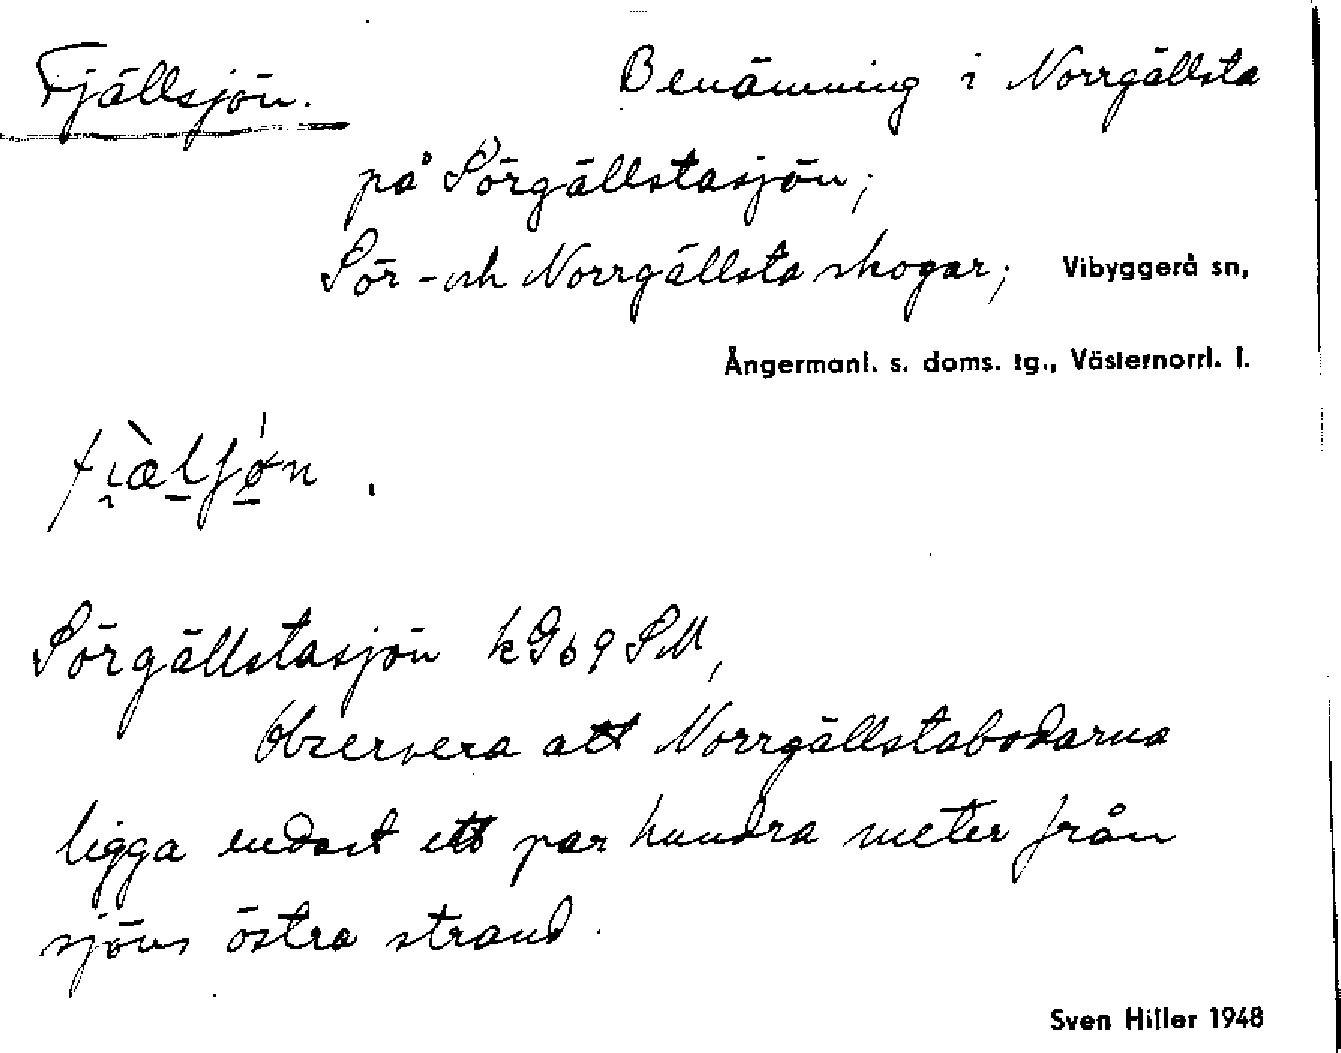 Fjällsjön. Benämning i Norrgällsta
på Sörgällstasjön;
Sör- och Norrgällsta skogar; Vibyggerå sn,
Ångermanl. s. doms. tg., Västernorrl. l.
Sörgällstasjön k969 SM,
Observera att Norrgällstabodarna
ligga endast ett par hundra meter från
sjöns östra strand.
Sven Hiller 1948